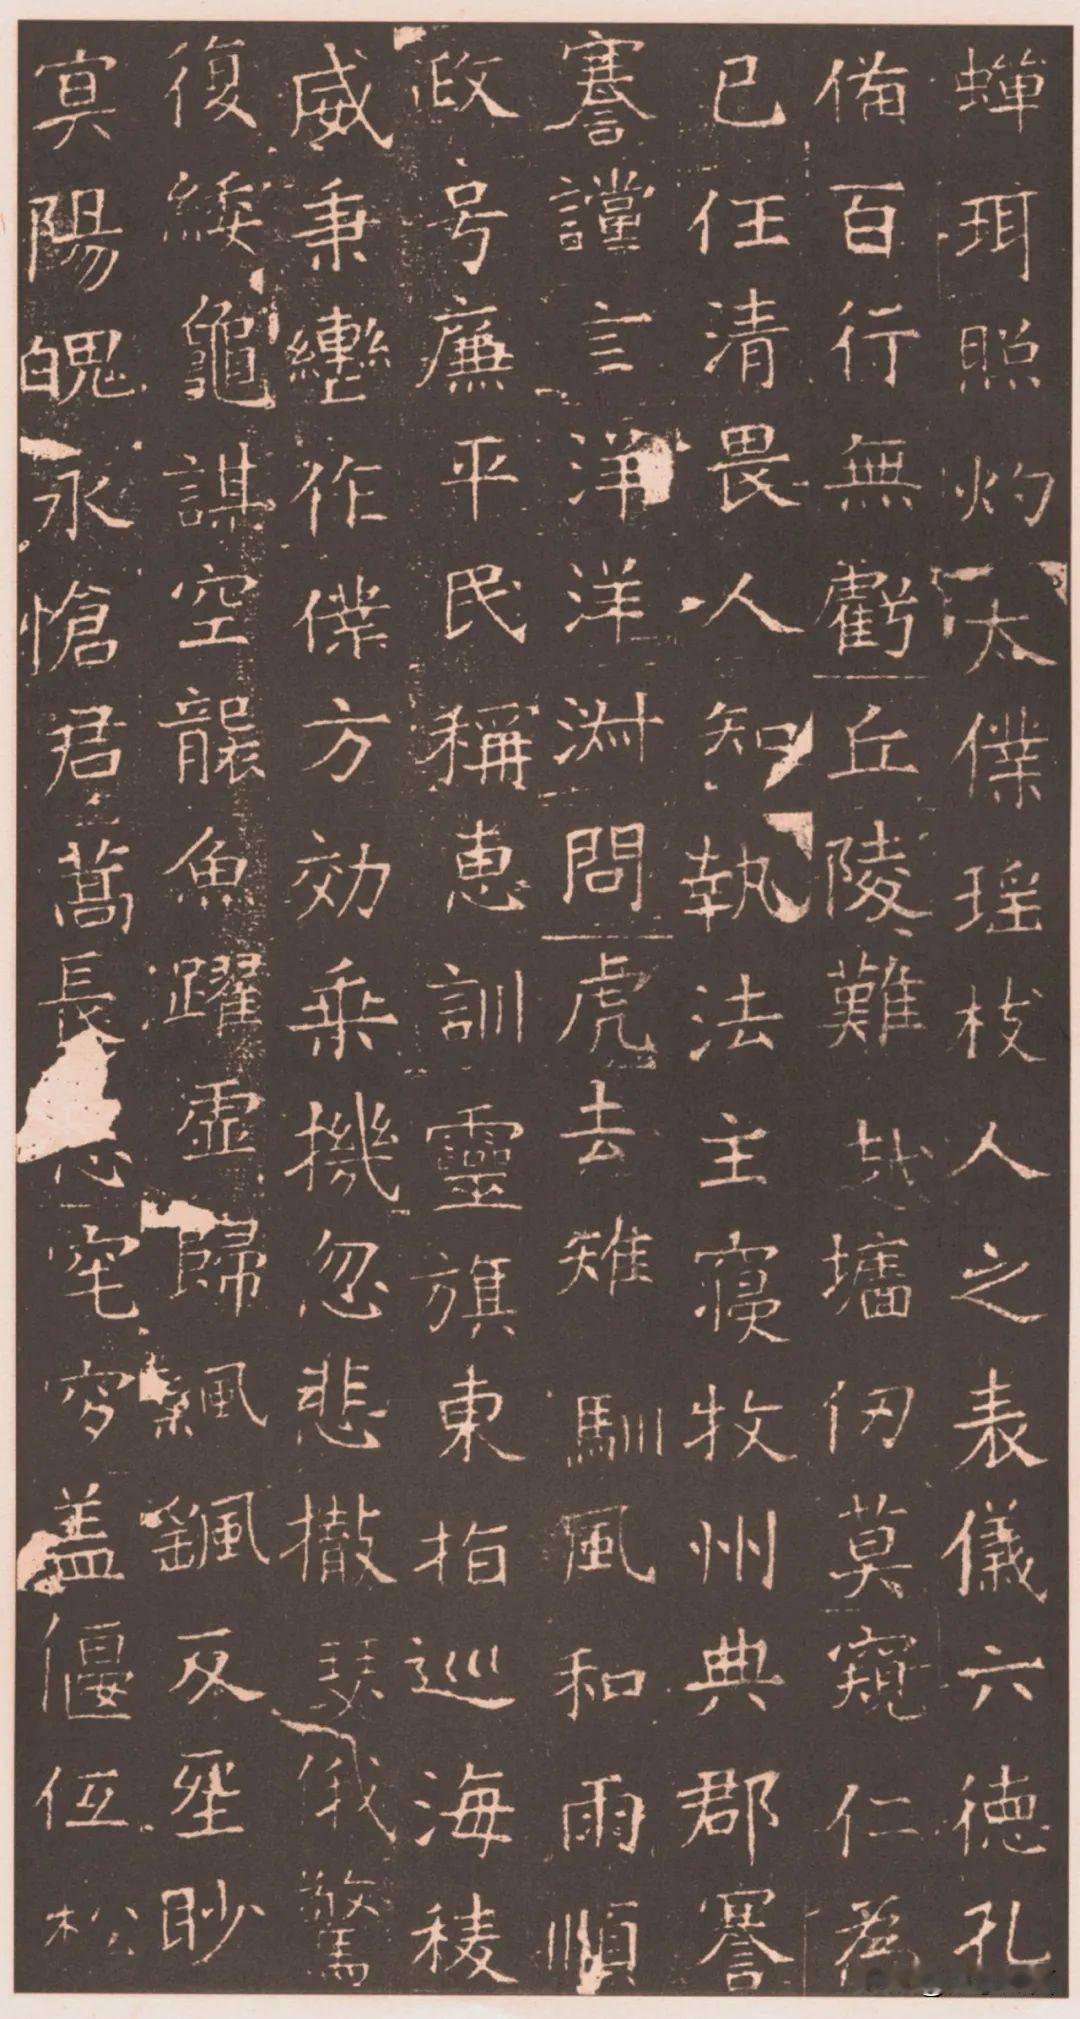 蟬珥照灼太僕瑶枝人之表儀六德孔
備百行無虧丘陵難越墻仞莫窺仁為
已任清畏人知執法主寝牧州典郡謇
謇讜言洋洋淋問虎去雉馴風和雨順
政号廉平民稱恵訓靈旗東指巡海稜
威秉轡作僕方効乘機忽悲撤瑟俄驚
復綏龜謀空襲魚躍虚歸飄颻反㘴眇
寞陽魄永愴君蒿長悲窀穸盖偃伍松